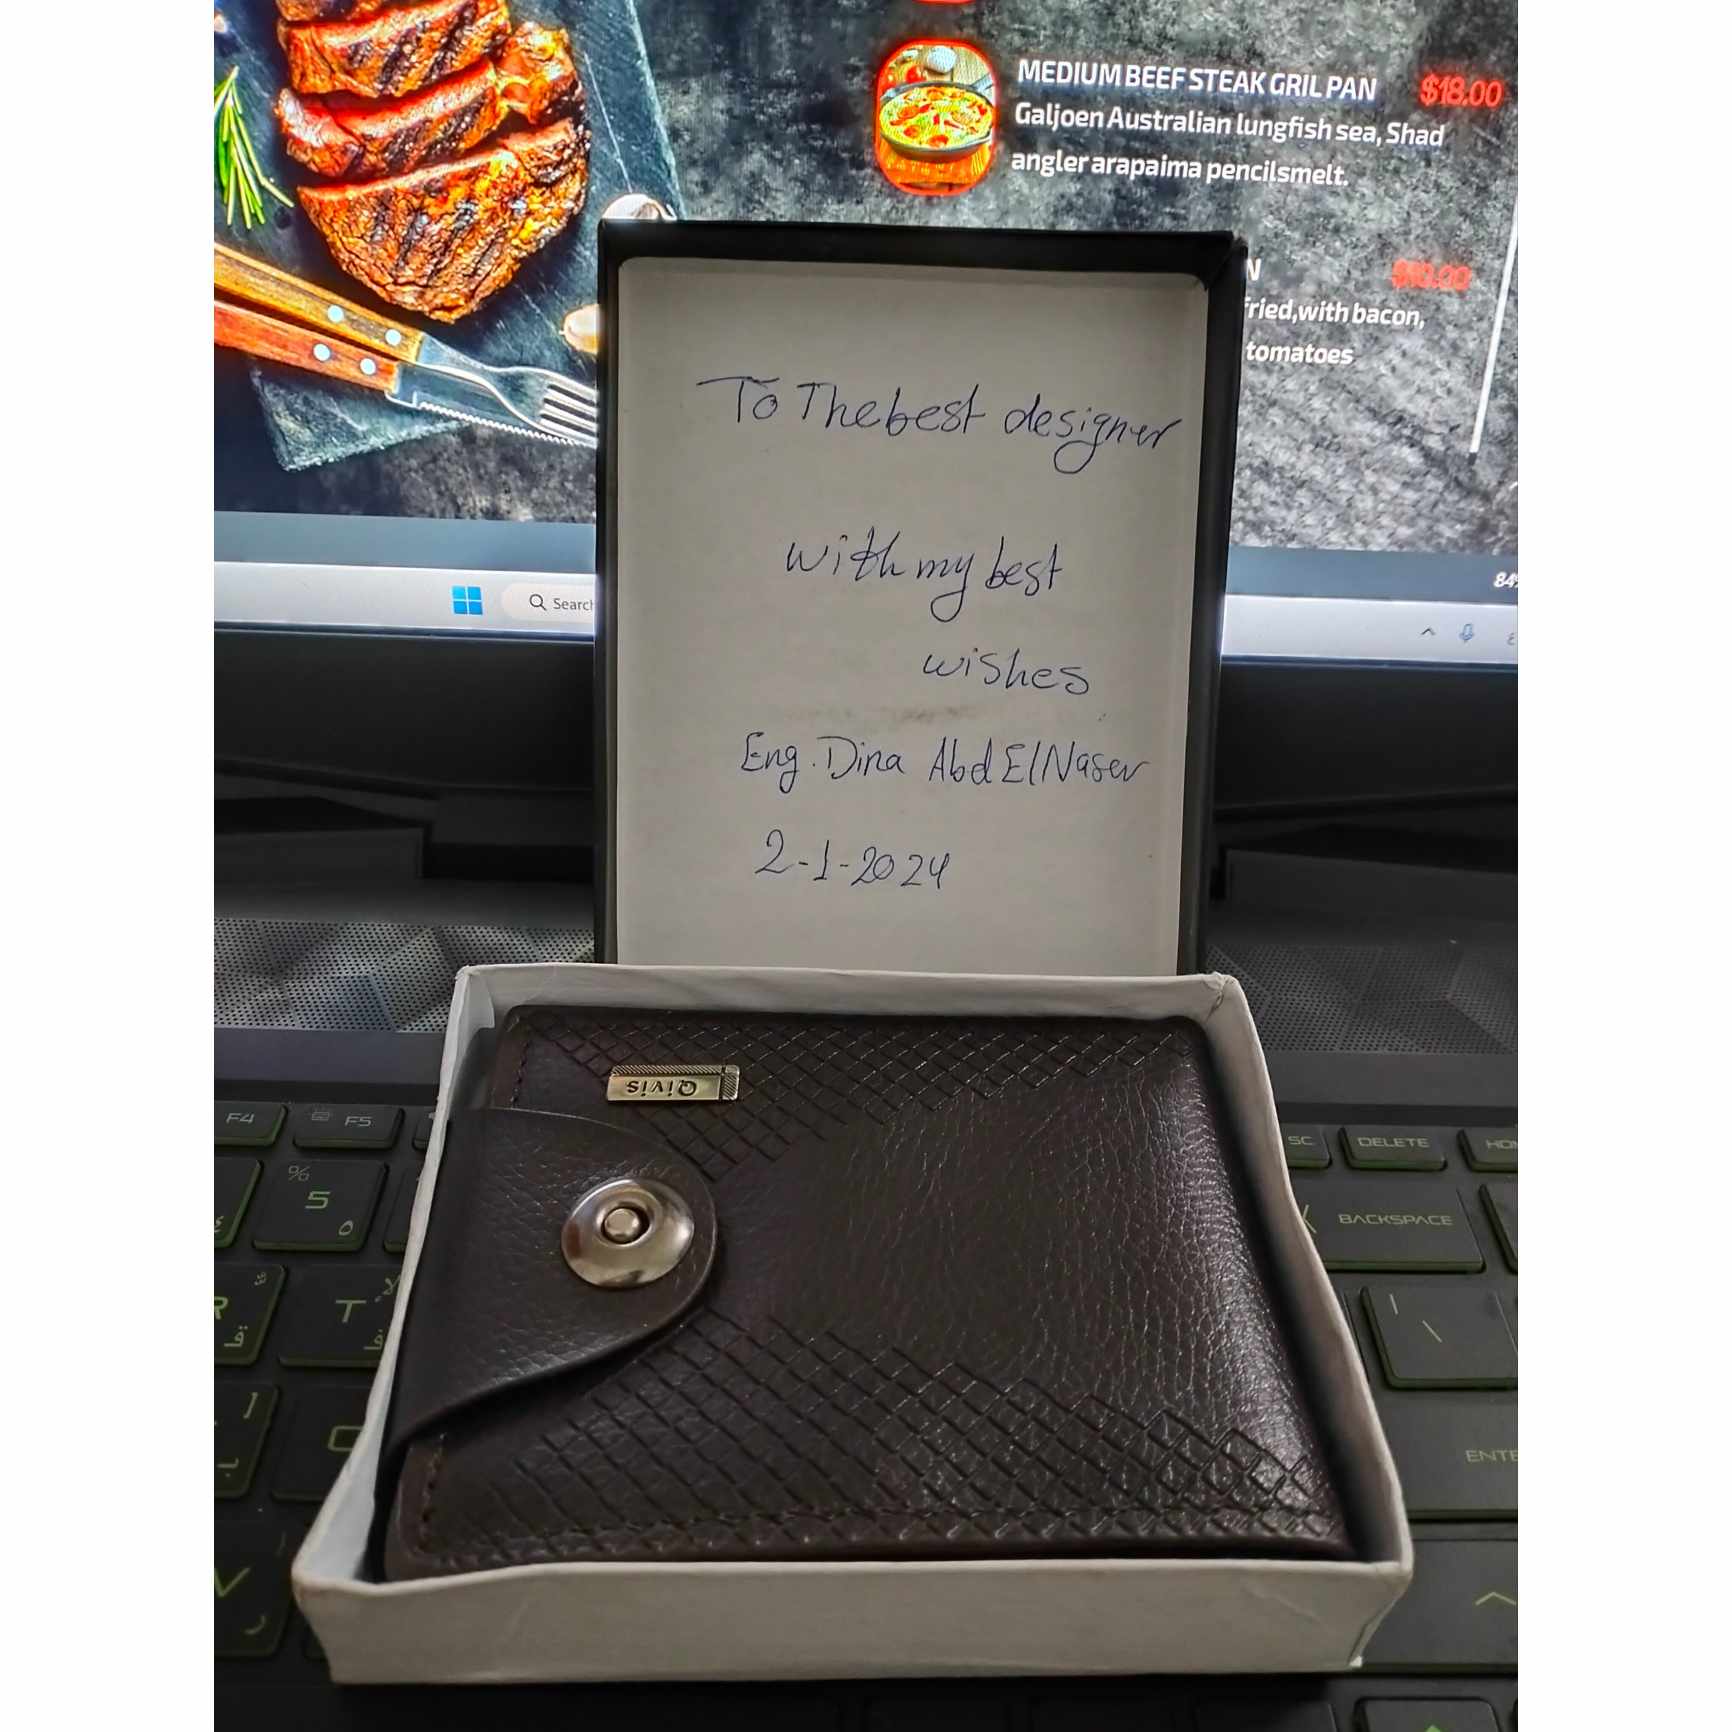 MEDIUM BEEF STEAK GRIL PAN $18.00
Galjoen Australian lungfish sea, Shad
angler arapaima pencilsmelt.
N $10.00
fried,with bacon,
tomatoes
To The best designer
with my best
wishes
Eng. Dina Abd ElNaser
2-1-2024
Search
84%
Qivis
F4 F5
SC DELETE HOM
% 5 ٥
BACKSPACE
R ق T ف لإ
\ |
ENTE
V ر